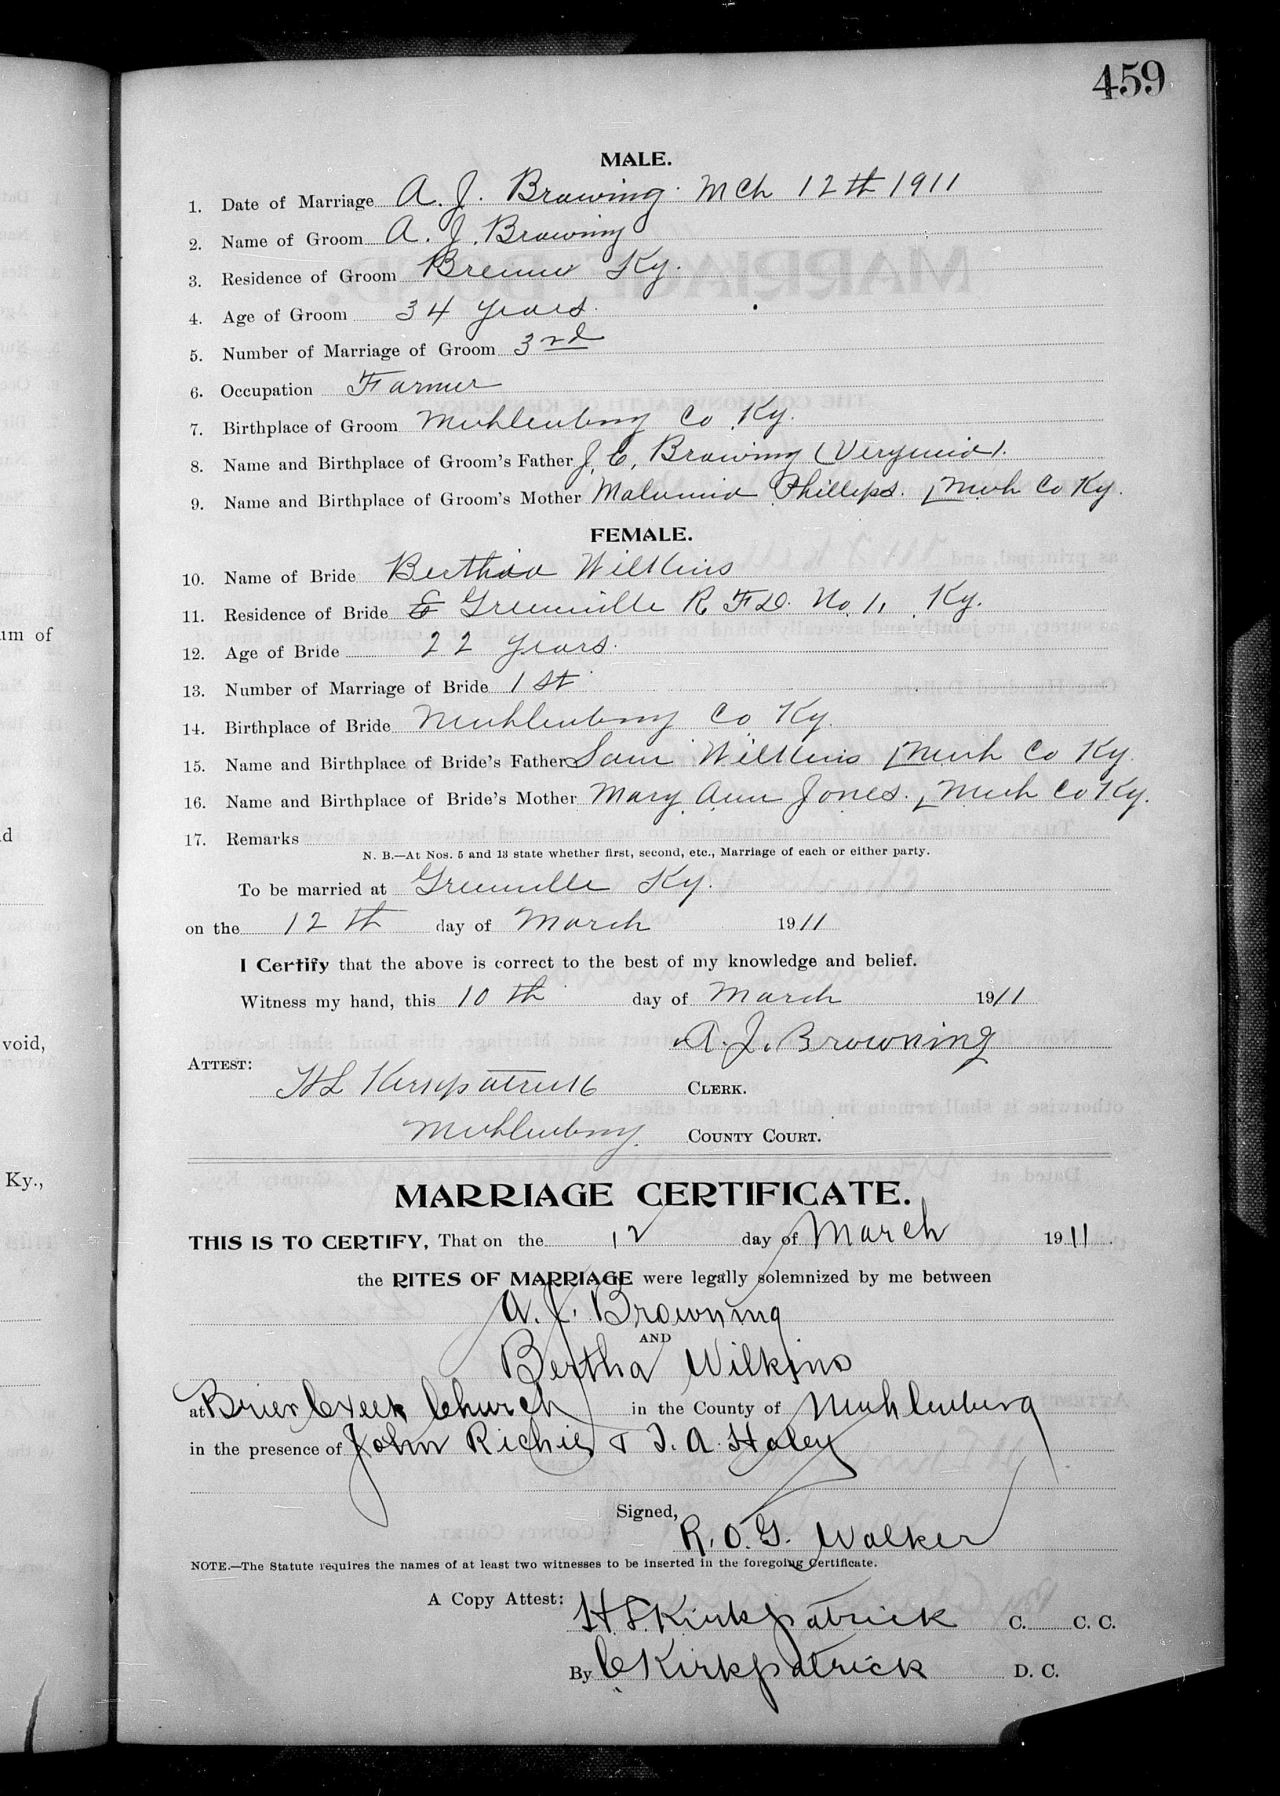 459
MALE.
1. Date of Marriage A. J. Browing. Mch 12th 1911
2. Name of Groom A. J. Browing
3. Residence of Groom Bremen Ky.
4. Age of Groom 34 years.
5. Number of Marriage of Groom 3rd
6. Occupation Farmer
7. Birthplace of Groom Muhlenberg Co Ky.
8. Name and Birthplace of Groom's Father J. C. Browing (Verginia).
9. Name and Birthplace of Groom's Mother Phillips. (Muh Co Ky.
FEMALE.
10. Name of Bride Bertha Wilkins
11. Residence of Bride Greenville R. F. D. No. 1, Ky.
12. Age of Bride 22 years.
13. Number of Marriage of Bride 1st
14. Birthplace of Bride Muhlenberg Co Ky.
15. Name and Birthplace of Bride's Father Sam Wilkins (Muh Co Ky.
16. Name and Birthplace of Bride's Mother Mary Ann Jones. (Muh Co Ky.
17. Remarks
N. B.—At Nos. 5 and 13 state whether first, second, etc., Marriage of each or either party.
To be married at Greenville Ky.
on the 12th day of March 1911
I Certify that the above is correct to the best of my knowledge and belief.
Witness my hand, this 10th day of March 1911
A. J. Browning
ATTEST:
H L Kirkpatrick CLERK.
Muhlenberg COUNTY COURT.
MARRIAGE CERTIFICATE.
THIS IS TO CERTIFY, That on the 12 day of March 1911.
the RITES OF MARRIAGE were legally solemnized by me between
A. J. Browning
AND
Bertha Wilkins
at Brier Creek Church in the County of Muhlenburg
in the presence of John Richie & T. A. Haley
Signed,
R. O. G. Walker
NOTE.—The Statute requires the names of at least two witnesses to be inserted in the foregoing Certificate.
A Copy Attest: H. L. Kirkpatrick C. C. C.
By C Kirkpatrick D. C.
um of
d
void,
Ky.,